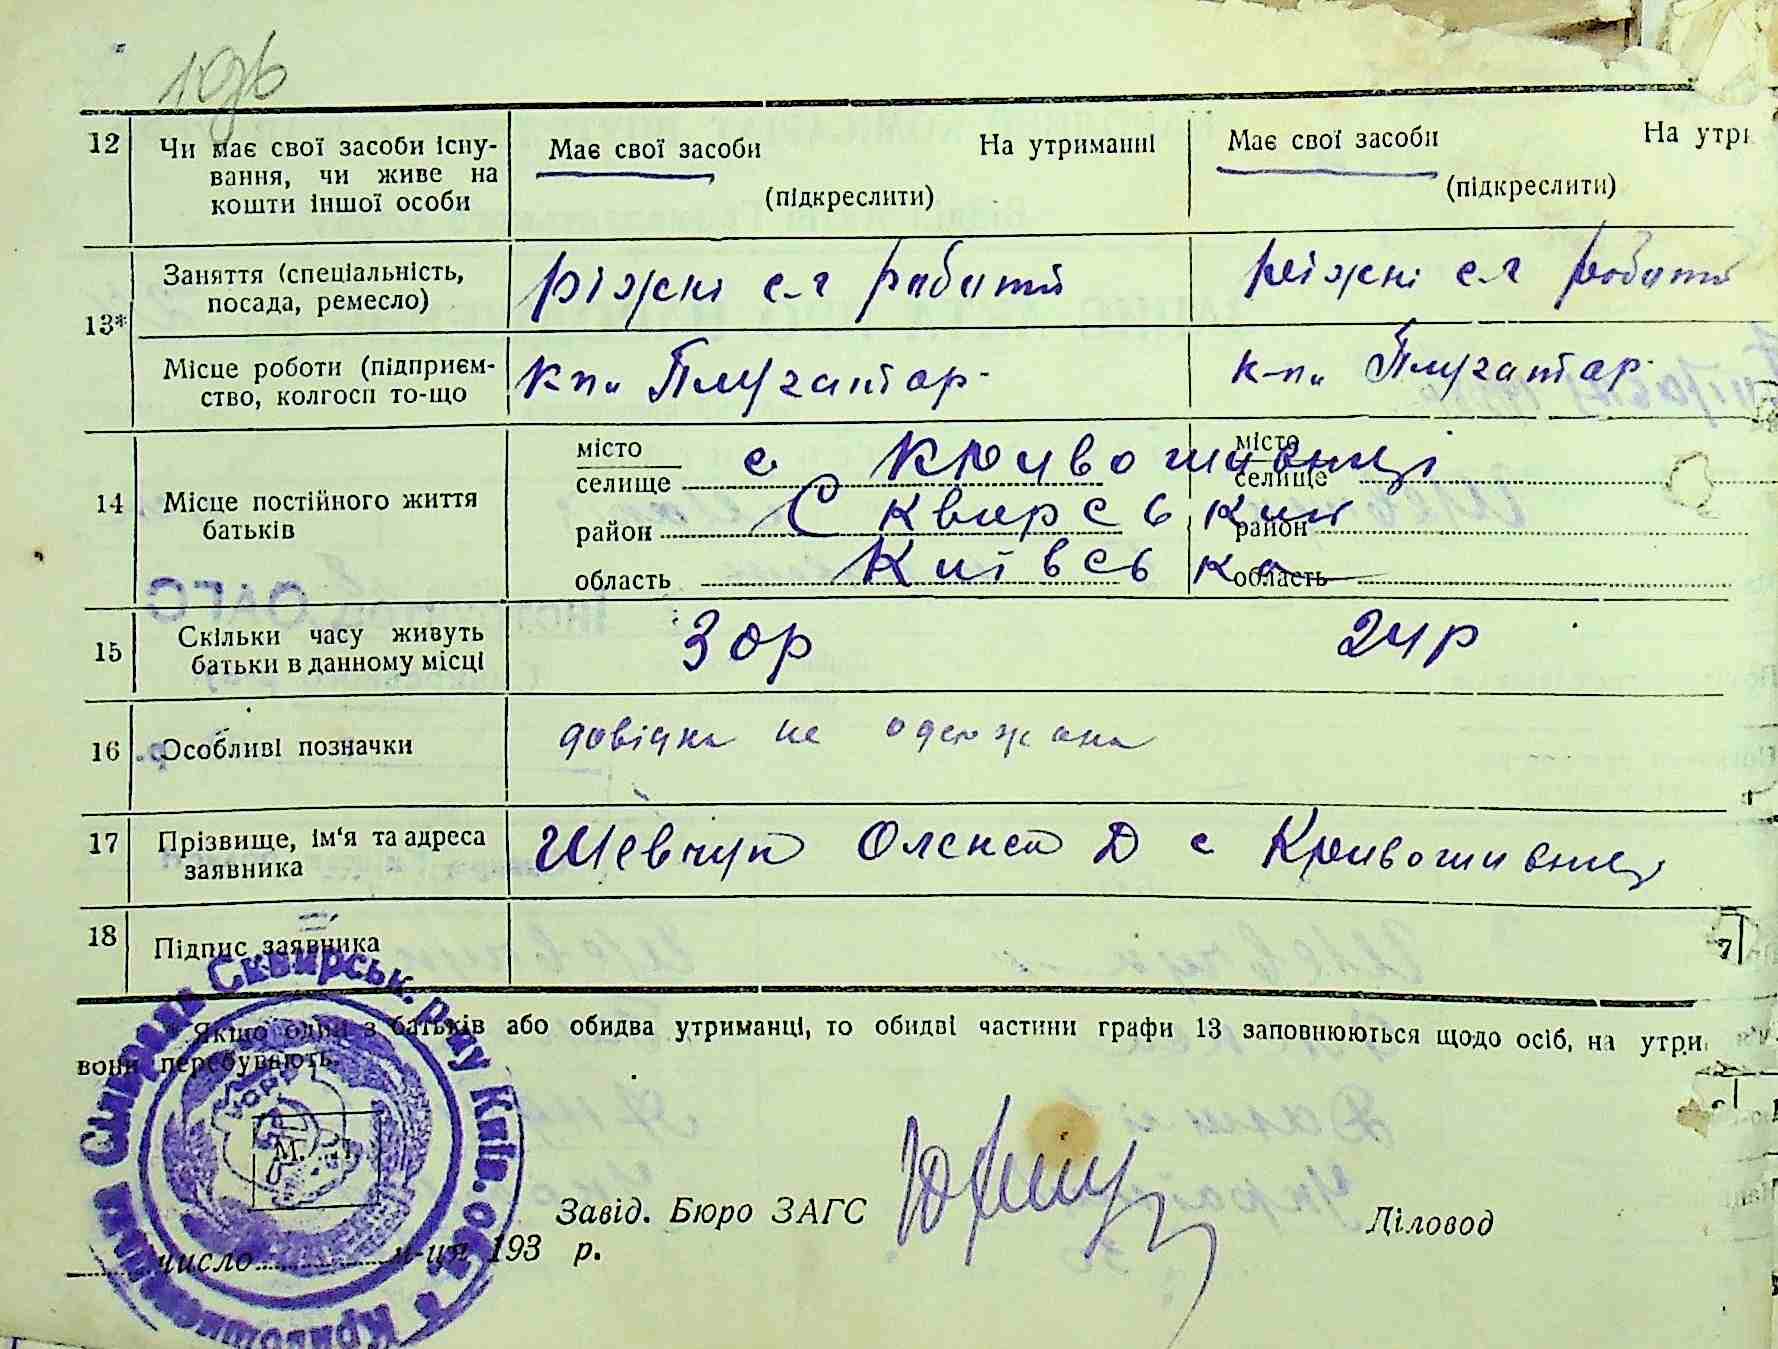 196
12 Чи має свої засоби існу- Має свої засоби На утриманні Має свої засоби На утри
вання, чи живе на
кошти іншої особи (підкреслити) (підкреслити)
13* Заняття (спеціальність, ріжні с-г работи ріжні с г роботи
посада, ремесло)
Місце роботи (підприєм- к-п Плугатар к-п Плугатар
ство, колгосп то-що
14 Місце постійного життя
батьків
місто місто
селище с Кривошиівці селище
район Сквирський район
область Київська область
15 Скільки часу живуть 30р 24р
батьки в данному місці
16 Особливі позначки довідка не одержана
17 Прізвище, ім'я та адреса Шевчук Олена Д с Кривошиівці
заявника
18 Підпис заявника
7
Якщо один з батьків або обидва утриманці, то обидві частини графи 13 заповнюються щодо осіб, на утри
вони перебувають.
Сквирськ. р-ну Київ. обл.
УСРР
М. П.
Завід. Бюро ЗАГС Діловод
число м-ця 193 р.